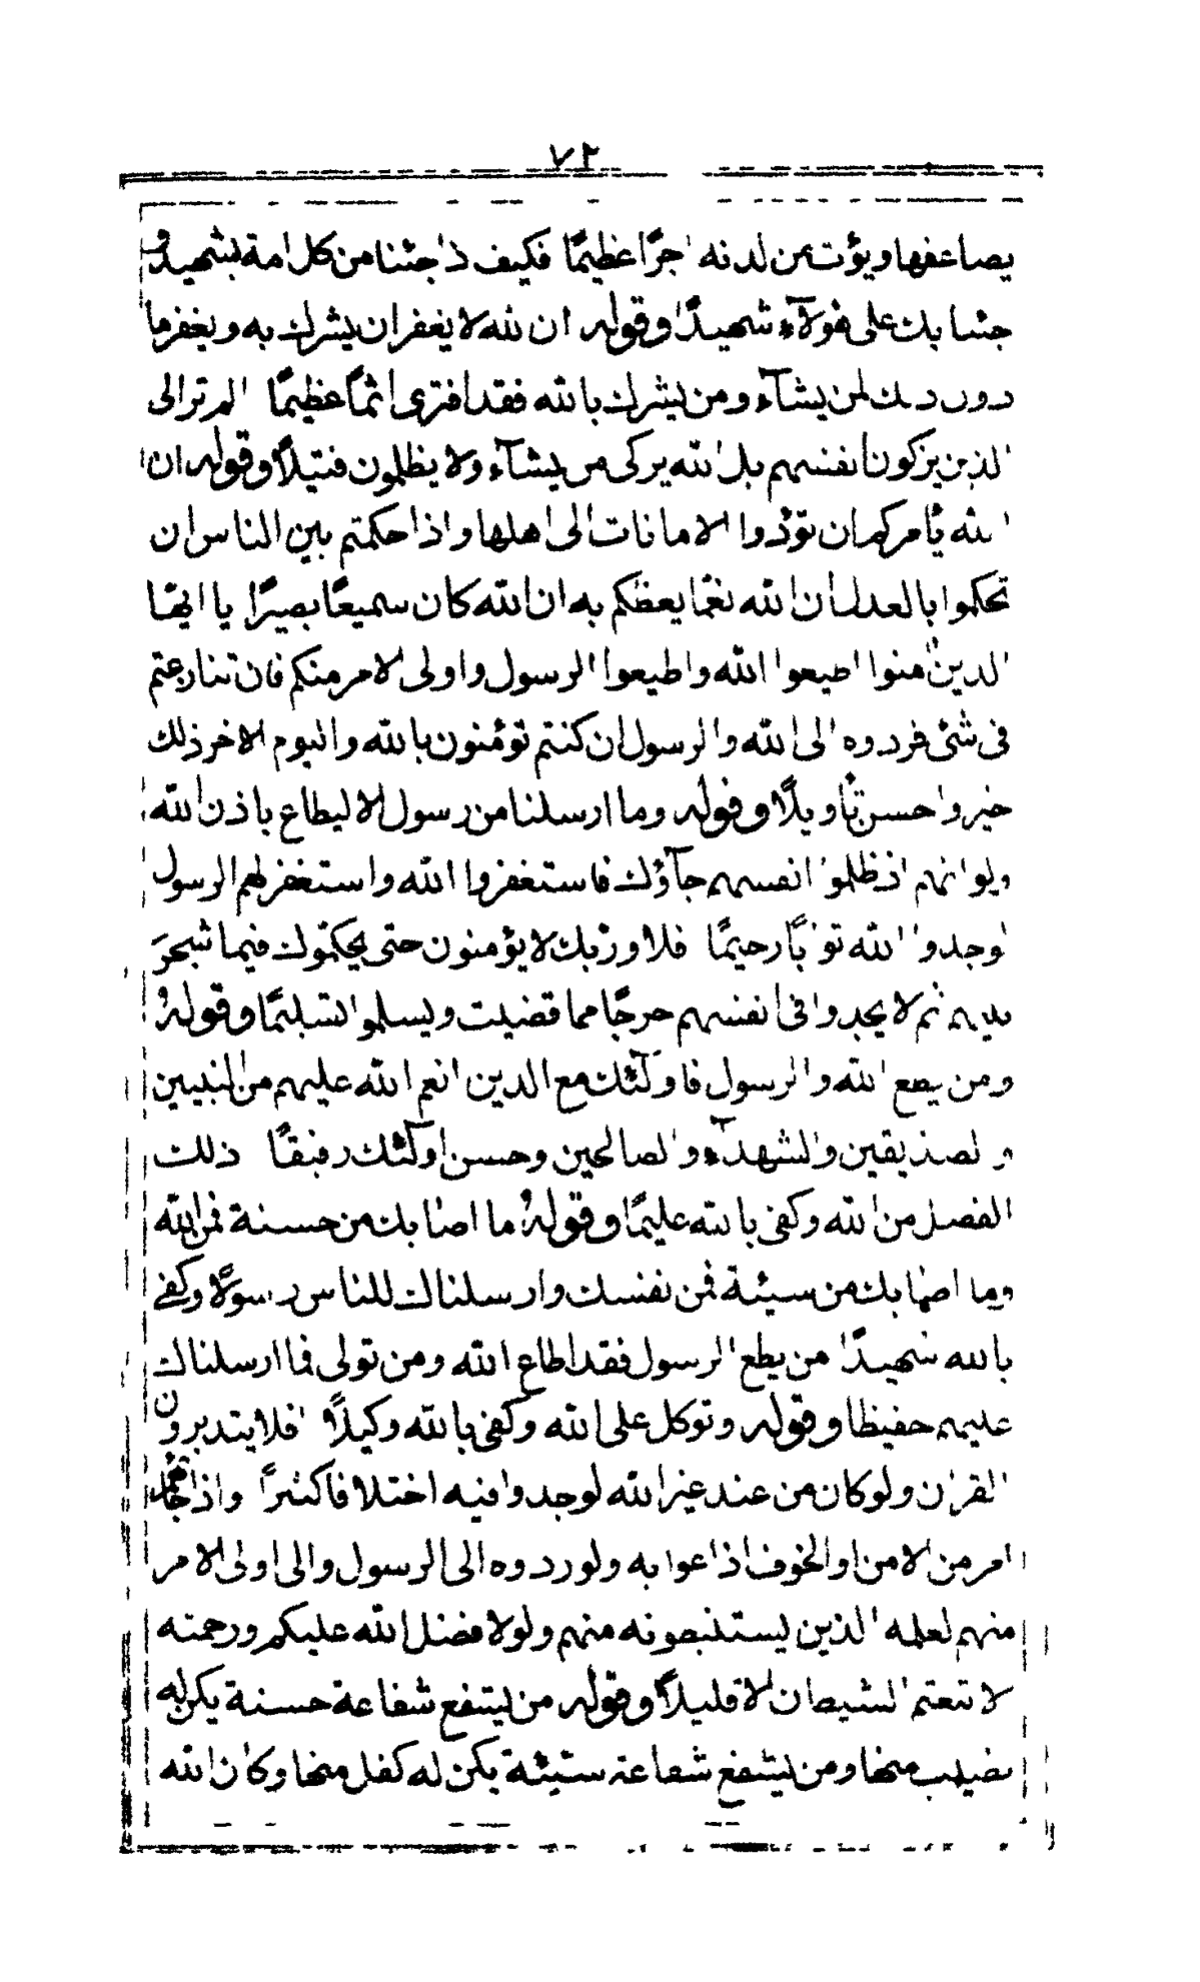 ٧٢
يضاعفها ويؤت من لدنه اجرًا عظيمًا فكيف اذا جئنا من كل امة بشهيد و
جئنا بك على هؤلآء شهيدًا وقوله ان الله لا يغفر ان يشرك به ويغفر ما
دون ذلك لمن يشآء ومن يشرك بالله فقد افترى اثمًا عظيمًا الم تر الى
الذين يزكون انفسهم بل الله يزكى من يشآء ولا يظلمون فتيلًا وقوله ان
الله يأمركم ان تؤدوا الامانات الى اهلها واذا حكمتم بين الناس ان
تحكموا بالعدل ان الله نعمّا يعظكم به ان الله كان سميعًا بصيرًا يا ايها
الذين امنوا اطيعوا الله واطيعوا الرسول واولى الامر منكم فان تنازعتم
فى شئ فردوه الى الله والرسول ان كنتم تؤمنون بالله واليوم الاخر ذلك
خير واحسن تأويلًا وقوله وما ارسلنا من رسول الا ليطاع باذن الله
ولو انهم اذ ظلموا انفسهم جآؤك فاستغفروا الله واستغفر لهم الرسول
لوجدوا الله توابًا رحيمًا فلا وربك لا يؤمنون حتى يحكموك فيما شجر
بينهم ثم لا يجدوا فى انفسهم حرجًا مما قضيت ويسلموا تسليمًا وقوله
ومن يطع الله والرسول فاولٓئك مع الذين انعم الله عليهم من النبيين
والصديقين والشهدآء والصالحين وحسن اولٓئك رفيقًا ذلك
الفضل من الله وكفى بالله عليمًا وقوله ما اصابك من حسنة فمن الله
وما اصابك من سيئة فمن نفسك وارسلناك للناس رسولًا وكفى
بالله شهيدًا من يطع الرسول فقد اطاع الله ومن تولى فما ارسلناك
عليهم حفيظا وقوله وتوكل على الله وكفى بالله وكيلًا افلا يتدبرون
القران ولو كان من عند غير الله لوجدوا فيه اختلافا كثيرًا واذا جاءهم
امر من الامن او الخوف اذاعوا به ولو ردوه الى الرسول والى اولى الامر
منهم لعلمه الذين يستنبطونه منهم ولولا فضل الله عليكم ورحمته
لاتبعتم الشيطان الا قليلًا وقوله من يشفع شفاعة حسنة يكن له
نصيب منها ومن يشفع شفاعة سيئة يكن له كفل منها وكان الله